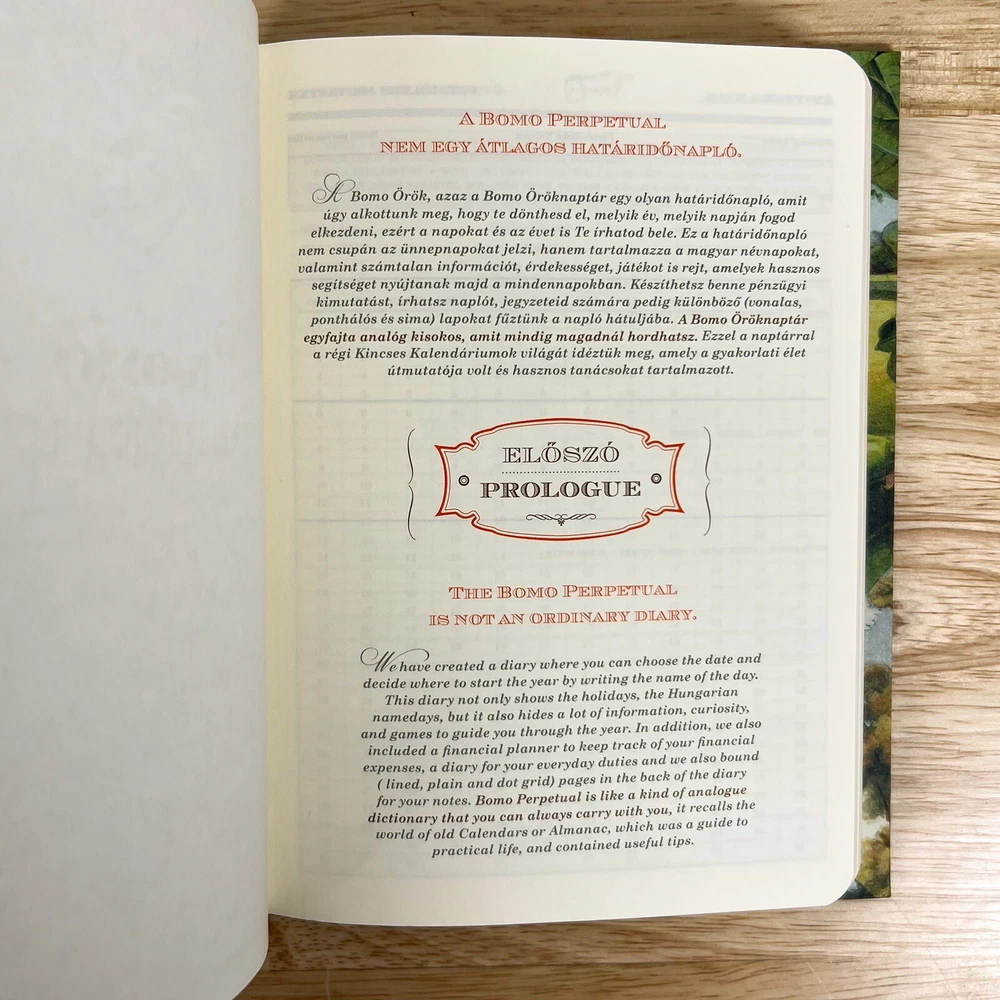 A Bomo Perpetual
nem egy átlagos határidőnapló.
A Bomo Örök, azaz a Bomo Öröknaptár egy olyan határidőnapló, amit
úgy alkottunk meg, hogy te dönthesd el, melyik év, melyik napján fogod
elkezdeni, ezért a napokat és az évet is Te írhatod bele. Ez a határidőnapló
nem csupán az ünnepnapokat jelzi, hanem tartalmazza a magyar névnapokat,
valamint számtalan információt, érdekességet, játékot is rejt, amelyek hasznos
segítséget nyújtanak majd a mindennapokban. Készíthetsz benne pénzügyi
kimutatást, írhatsz naplót, jegyzeteid számára pedig különböző (vonalas,
ponthálós és sima) lapokat fűztünk a napló hátuljába. A Bomo Öröknaptár
egyfajta analóg kisokos, amit mindig magadnál hordhatsz. Ezzel a naptárral
a régi Kincses Kalendáriumok világát idéztük meg, amely a gyakorlati élet
útmutatója volt és hasznos tanácsokat tartalmazott.
ELŐSZÓ
PROLOGUE
The Bomo Perpetual
is not an ordinary diary.
We have created a diary where you can choose the date and
decide where to start the year by writing the name of the day.
This diary not only shows the holidays, the Hungarian
namedays, but it also hides a lot of information, curiosity,
and games to guide you through the year. In addition, we also
included a financial planner to keep track of your financial
expenses, a diary for your everyday duties and we also bound
( lined, plain and dot grid) pages in the back of the diary
for your notes. Bomo Perpetual is like a kind of analogue
dictionary that you can always carry with you, it recalls the
world of old Calendars or Almanac, which was a guide to
practical life, and contained useful tips.